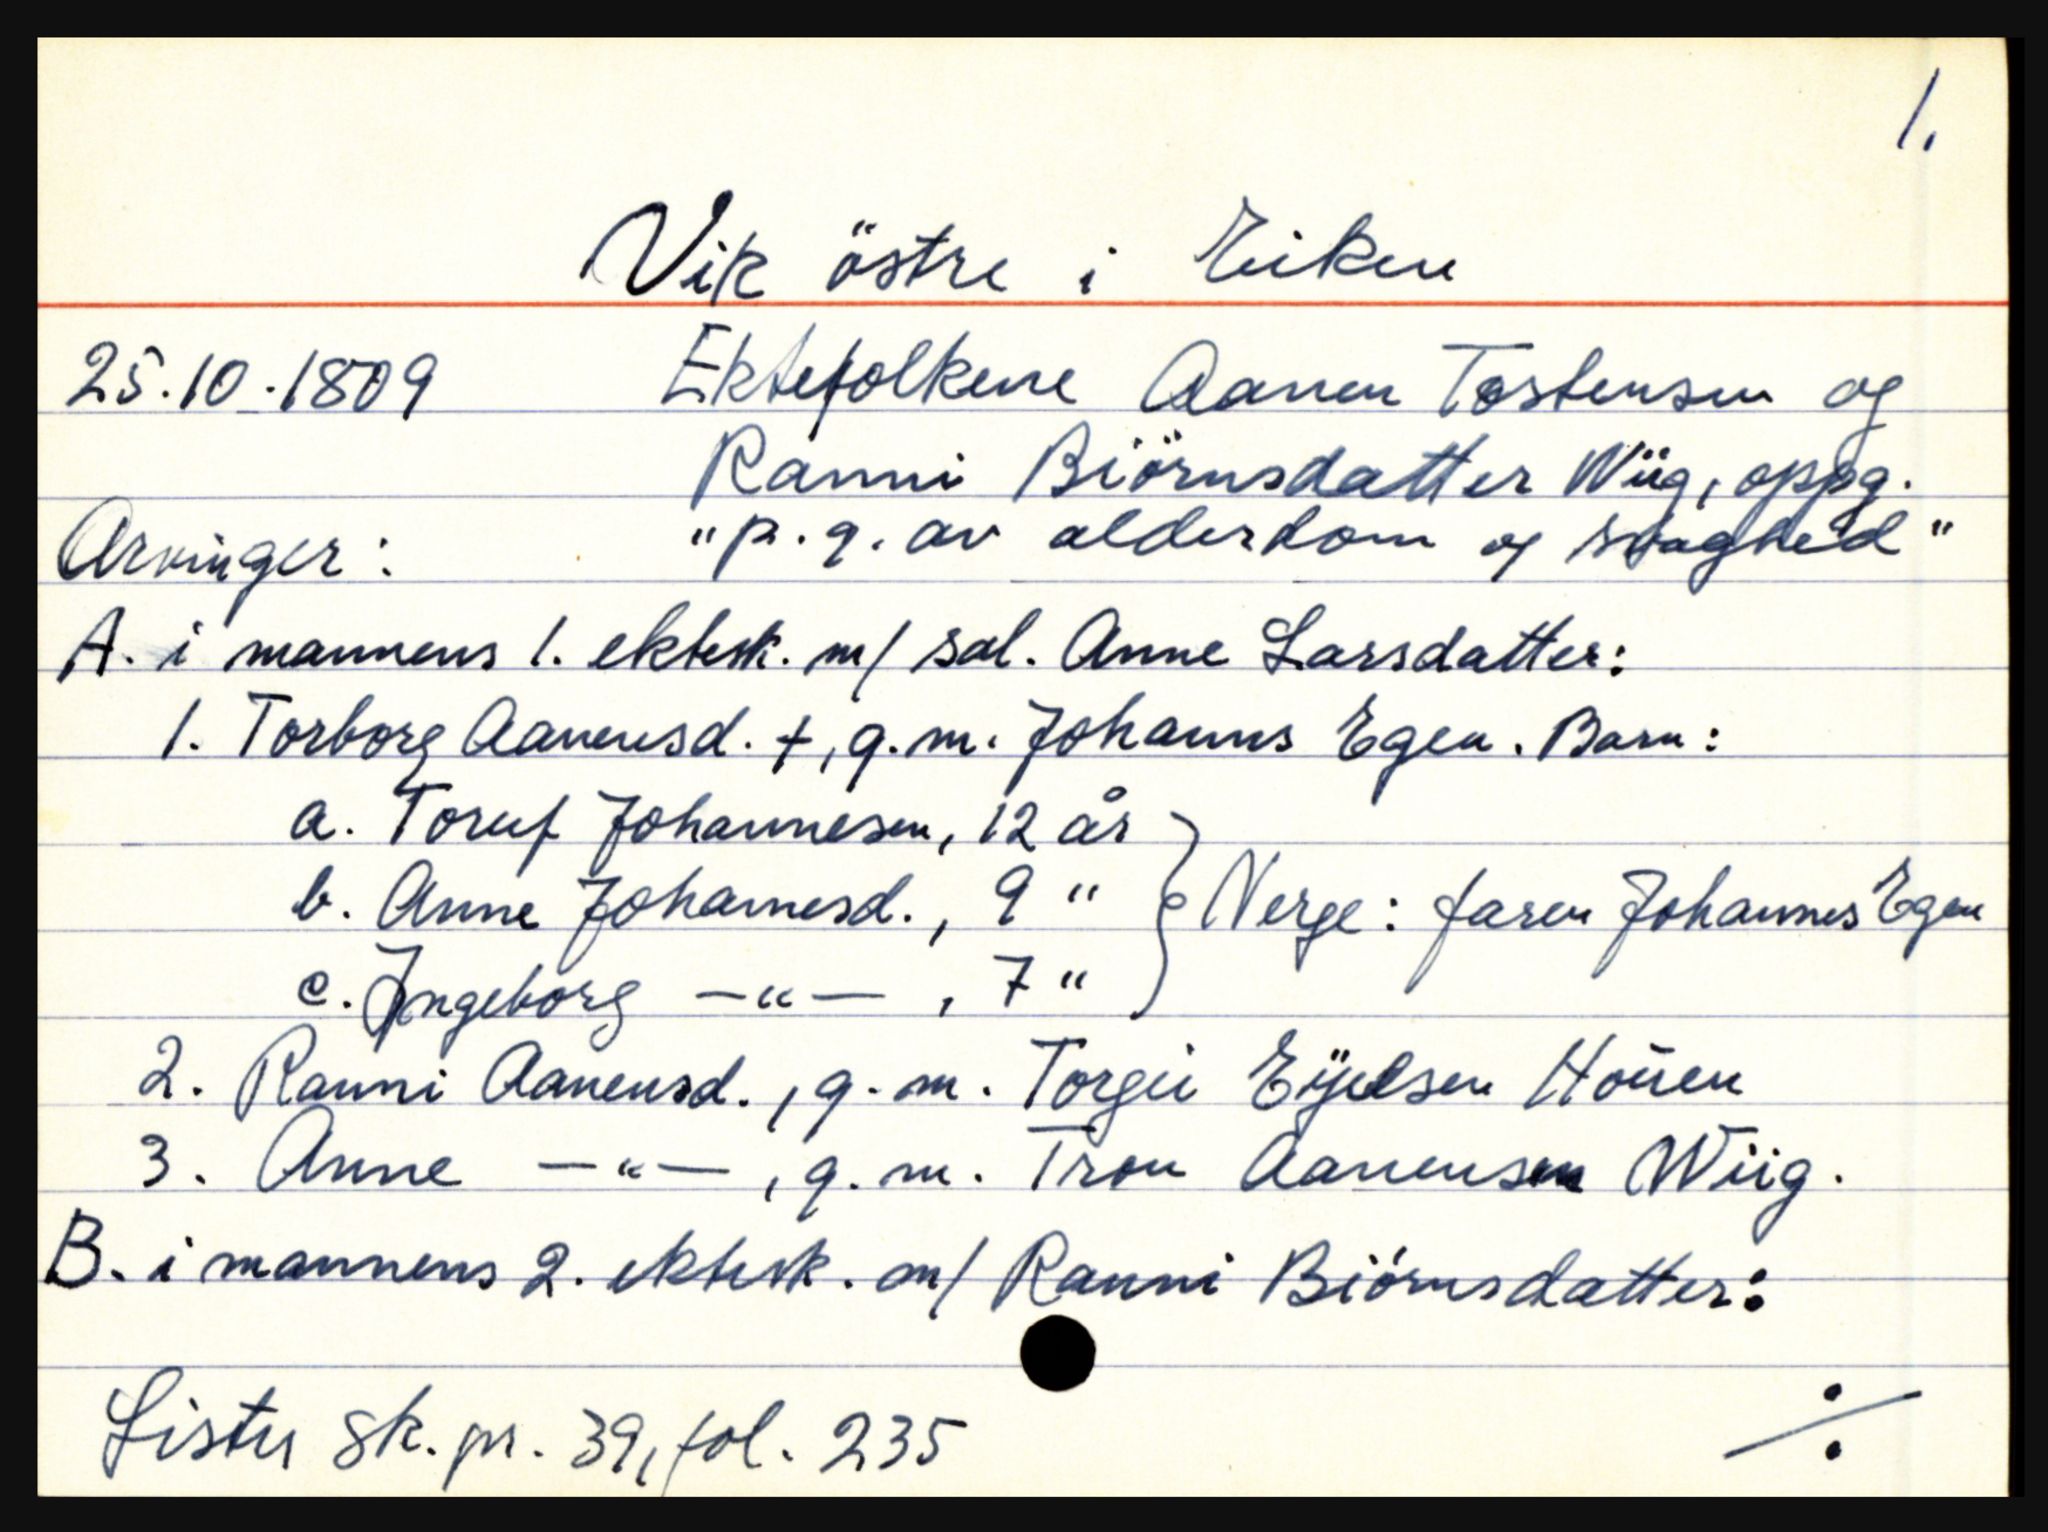 1.
Vik östre i Eiken
25.10.1809 Ektefolkene Aanen Tostensen og
Ranni Biörnsdatter Wiig, oppg.
Arvinger: "p.g. av alderdom og svaghed"
A. i mannens 1. ektesk. m/ sal. Anne Larsdatter:
1. Torborg Aanensd. +, g.m. Johannes Egen. Barn:
a. Toruf Johannesen, 12 år
b. Anne Johannesd., 9 " } Verge: faren Johannes Egen
c. Ingeborg —"— , 7 "
2. Ranni Aanensd., g.m. Torgei Eÿelsen Houen
3. Anne —"—, g.m. Tron Aanensen Wiig.
B. i mannens 2. ektesk. m/ Ranni Biörnsdatter:
Lister sk.pr. 39, fol. 235 ⁒